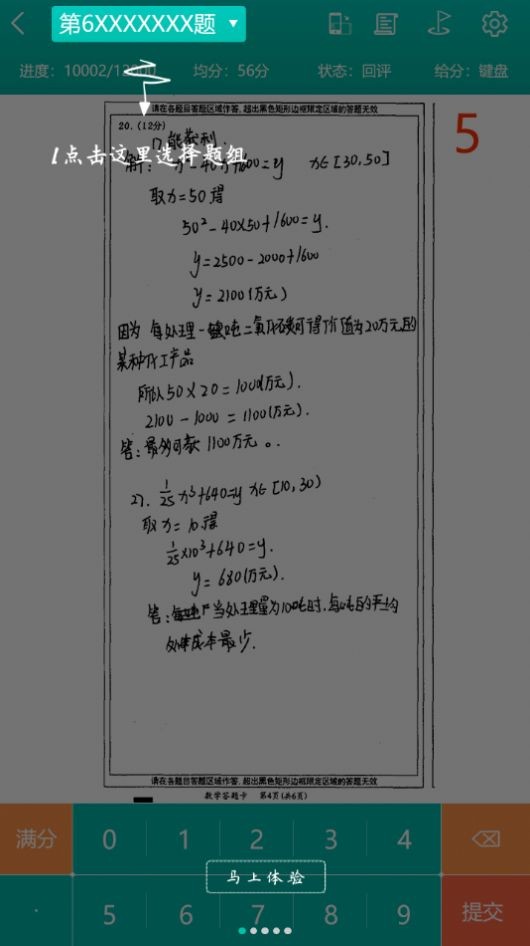 第6XXXXXXX题
进度：10002/12000 均分：56分 状态：回评 给分：键盘
请在各题目答题区域作答，超出黑色矩形边框限定区域的答题无效
20.（12分）
5
1点击这里选择题组
取x=50得
50²-40×50+1600=y.
y=2500-2000+1600
y=2100(万元)
因为 每处理一吨二氧化碳可得价值为20万元的
某种化工产品
所以50×20=1000(万元).
2100-1000=1100(万元).
答：最多可获1100万元。
x³+640=y x∈[10,30)
取x=10得
1/25×10³+640=y.
y=680(万元).
答：当处理量为10吨时,每吨的平均
处理成本最少.
请在各题目答题区域作答，超出黑色矩形边框限定区域的答题无效
数学答题卡 第4页(共6页)
满分 0 1 2 3 4
马上体验
. 5 6 7 8 9 提交